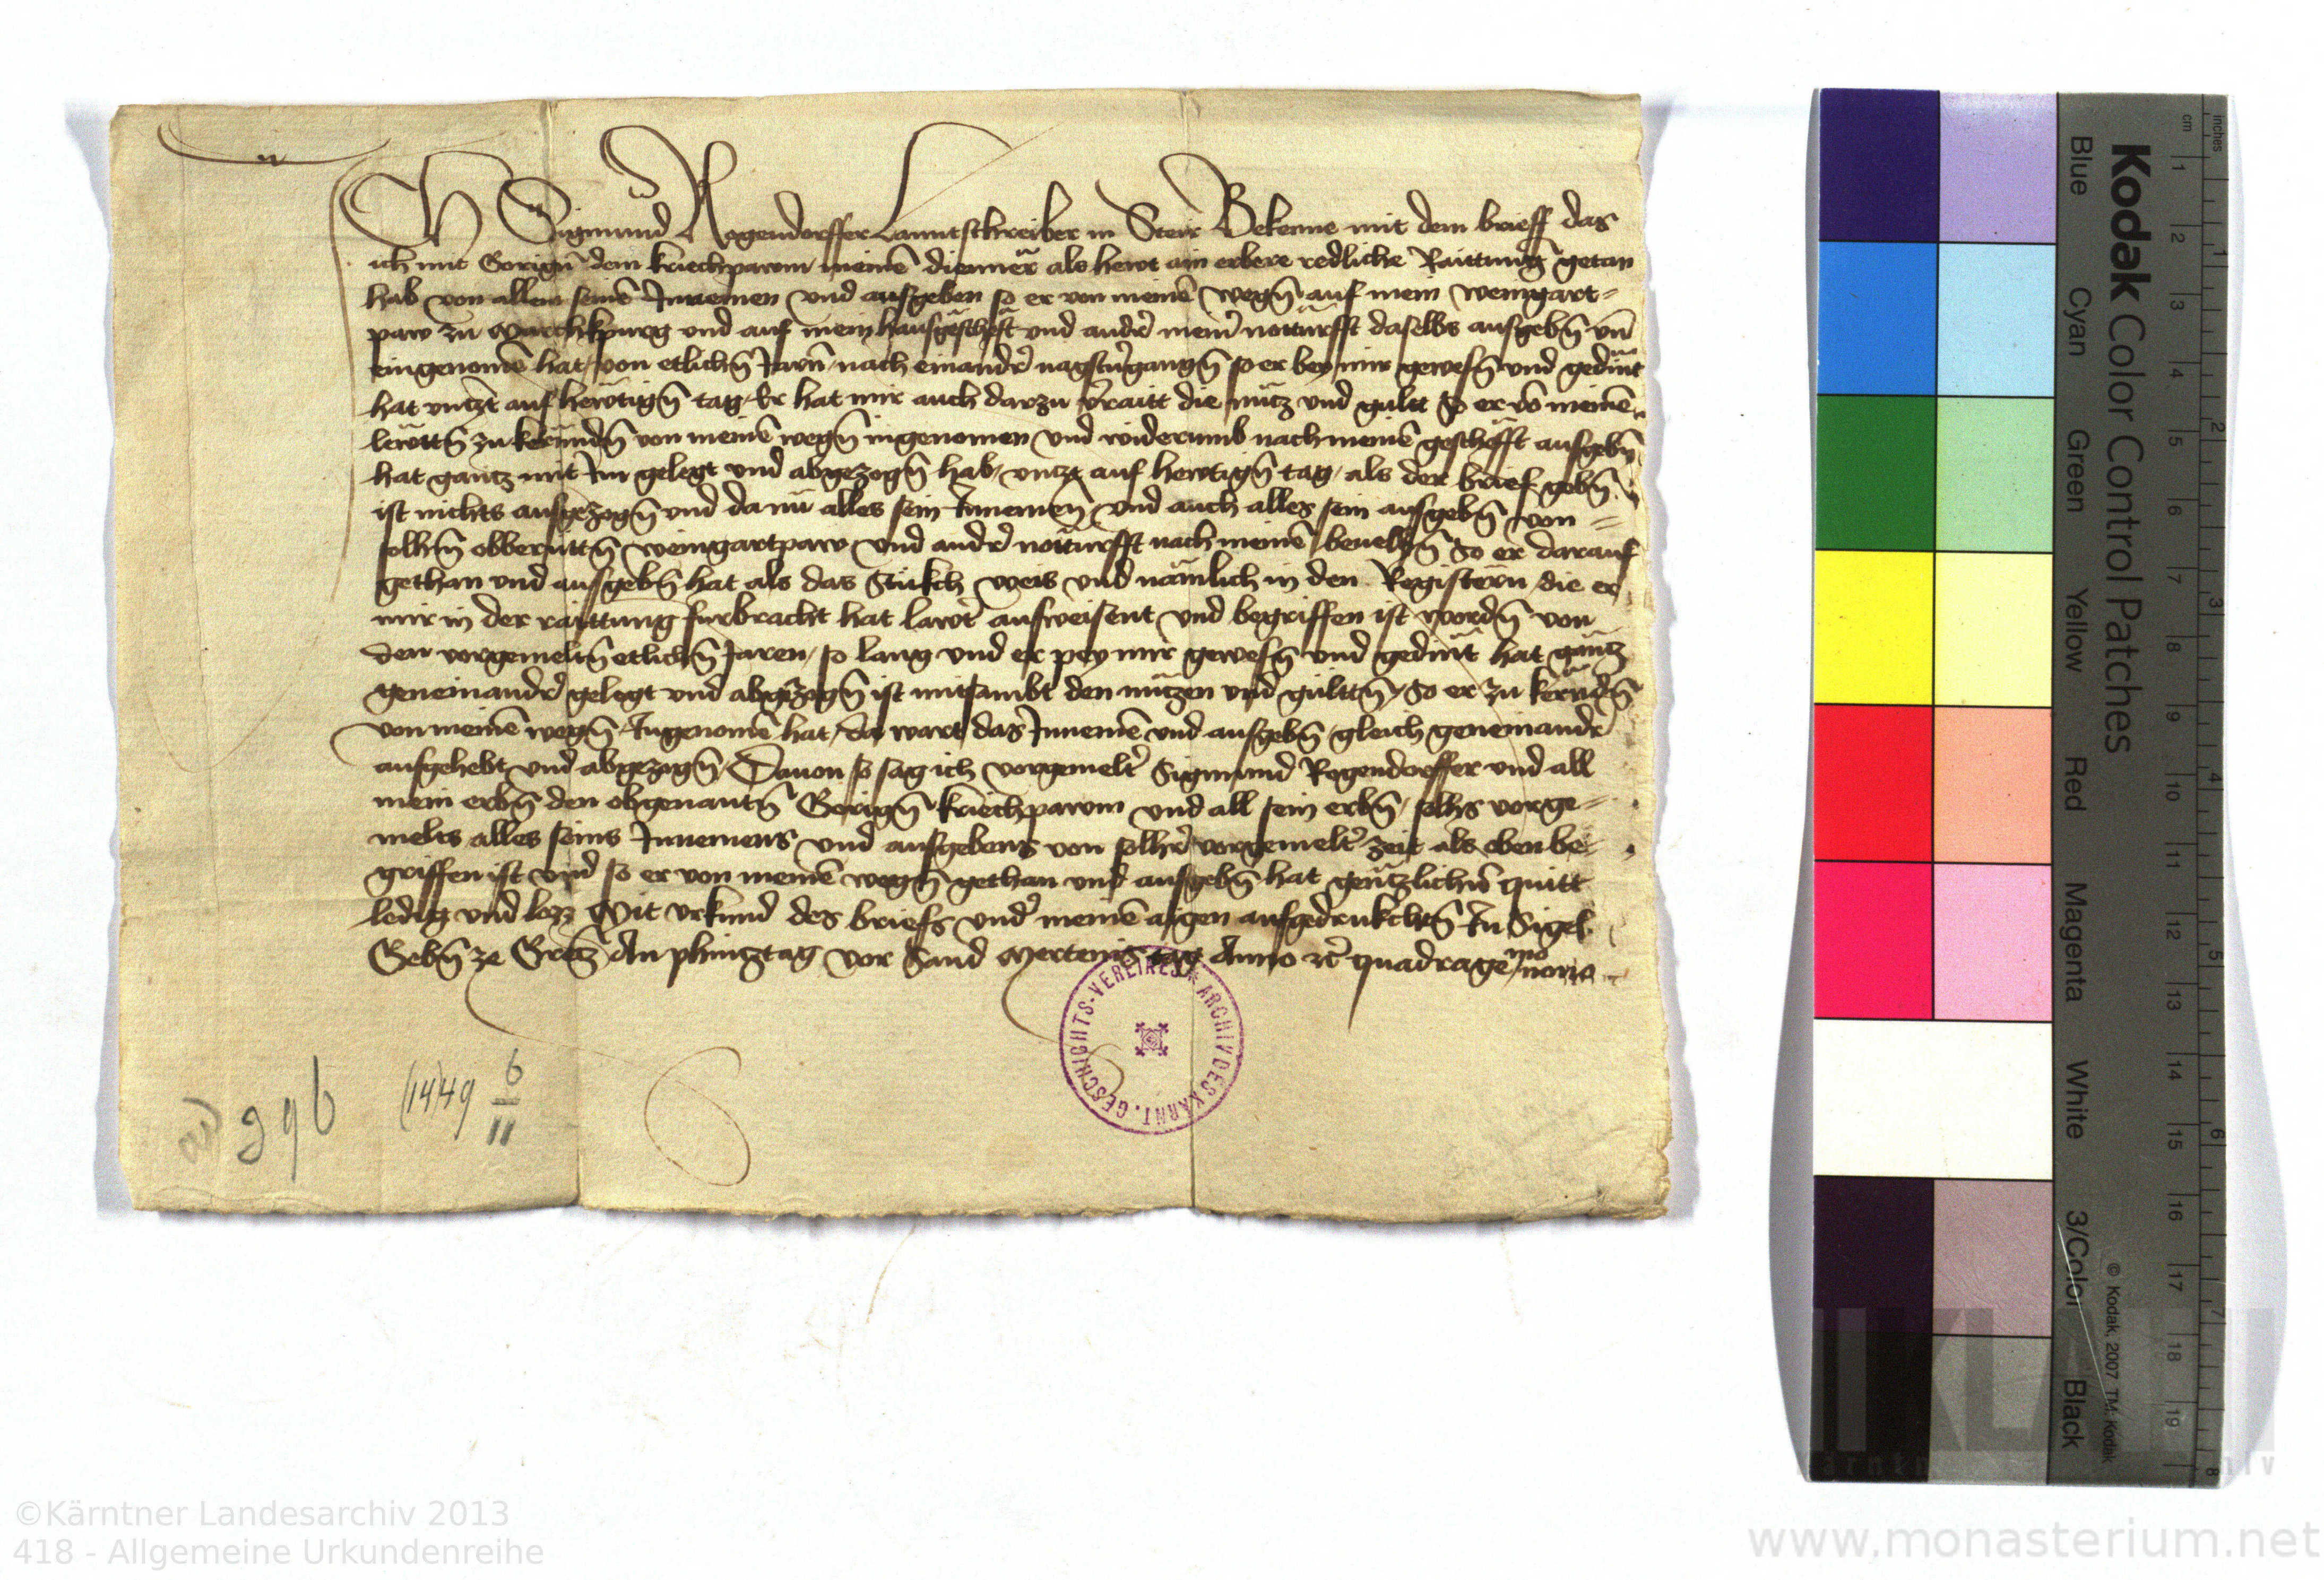 Ich Sigmund Rogendorffer Lanntschreiber in Steir Bekenne mit dem brieff das
ich mit Gorign̄ dem kriechpawm meinē diennēr als hewt ain erbere redliche Raittung getan
hab von allem seinē Innemen vnd ausgeben so er von meinē wegn̄ auf mein weingart=
paw zu Marchkpurg vnd auf mein hausgescheft vnd andr̄ mein̄ notturfft daselbs ausgebn̄ vn̄
eingenomē hat von etlichn̄ Jarn̄ nach einandr̄ nagstu̇gangn̄ so er bey mir gewesn̄ vnd gedint
hat vntzt auf hewtign̄ tag Er hat mir auch darzu v̄raitt die nutz vnd gultt so er vō meinē
lewttn̄ zu kerndn̄ von meinē wegn̄ ingenomen vnd widerumb nach meinē geschefft ausgebn̄
hat gantz mit Im gelegt vnd abgezogn̄ hab vntzt auf hewtign̄ tag als der brief gebn̄
ist nichts ausgezogn̄ vnd da nu alles sein Innemen vnd auch alles sein ausgebn̄ von =
solhn̄ obberuttn̄ weingartpaw vnd andr̄ notturfft nach meinē beuelhn̄ So er darauf
gethan vnd ausgebn̄ hat als das Stukch weis vnd nämlich in den Registern die er
mir in der raittung furbracht hat lawt̄ ausweisent vnd begriffen ist wordn̄ von
den vorgemeltn̄ etlichn̄ Jaren so lang vnd er pey mir gewesn̄ vnd gedint hat gantz
geneinandr̄ gelegt vnd abgezogn̄ ist mitsambt den nutzen vnd gulttn̄ So er zu kerndn̄
von meinē wegn̄ Ingenomē hat da wart das Innemē vnd ausgebn̄ gleich geneinandr̄
aufgehebt vnd abgezogn̄ Dauon so sag ich vorgemelt̄ Sigmund Rogendorffer vnd all
mein erbn̄ den obgenantn̄ Gorign̄ kriechpawm vnd all sein erbn̄ solhs vorge=
melts alles seins Innemens vnd ausgebens von solhr̄ vorgemelt̄ zeit als oben be=
griffen ist vnd so er von meinē wegn̄ gethan vnd ausgebn̄ hat gentzlichn̄ quitt
ledig vnd lozz Mit vrkund des briefs vnd̄ meinē aigen aufgedrukchtn̄ In Sigel
Gebn̄ ze Gretz An phintztag vor Sand Mertenis tag Anno rc̄ quadragemo nono
ad 996 (14)49 6/11
GESCHICHTS-VEREINES * ARCHIV DES KÄRNT.
Kodak Color Control Patches
Blue Cyan Green Yellow Red Magenta White 3/Color Black
© Kodak, 2007 TM: Kodak
inches 1 2 3 4 5 6 7 8
cm 1 2 3 4 5 6 7 8 9 10 11 12 13 14 15 16 17 18 19
©Kärntner Landesarchiv 2013
418 - Allgemeine Urkundenreihe
www.monasterium.net